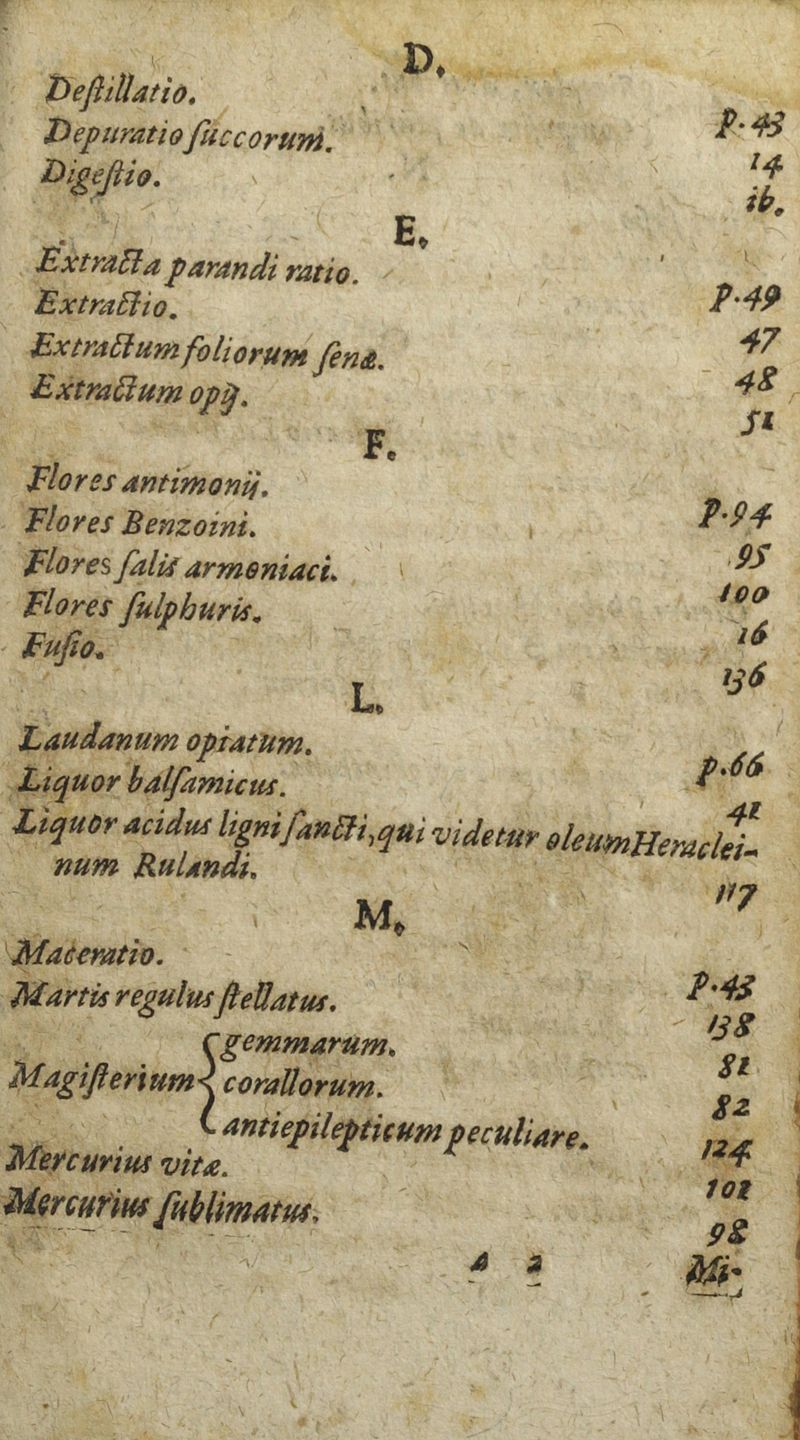 D.
Deſtillatio. p. 43
Depuratio ſuccorum. 14
Digeſtio. ib.
E.
Extracta parandi ratio. p. 49
Extractio. 47
Extractum foliorum ſenæ. 48
Extractum opij. 51
F.
Flores antimonij. p. 94
Flores Benzoini. 95
Flores ſalis armoniaci. 100
Flores ſulphuris. 16
Fuſio. 136
L.
Laudanum opiatum. p. 66
Liquor balſamicus. 41
Liquor acidus ligni ſancti, qui videtur oleum Heraclei-
num Rulandi. 117
M.
Maceratio. p. 43
Martis regulus ſtellatus. 138
Magiſterium { gemmarum. 81
corallorum. 82
antiepilepticum peculiare. 124
Mercurius vitæ. 101
Mercurius ſublimatus. 98
A 2 Mi-